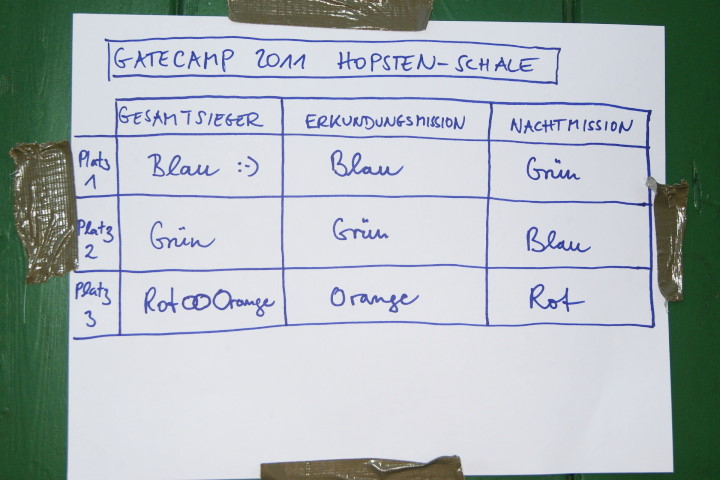 GATECAMP 2011 HOPSTEN-SCHALE
GESAMTSIEGER ERKUNDUNGSMISSION NACHTMISSION
Platz 1 Blau :-) Blau Grün
Platz 2 Grün Grün Blau
Platz 3 Rot ∞ Orange Orange Rot